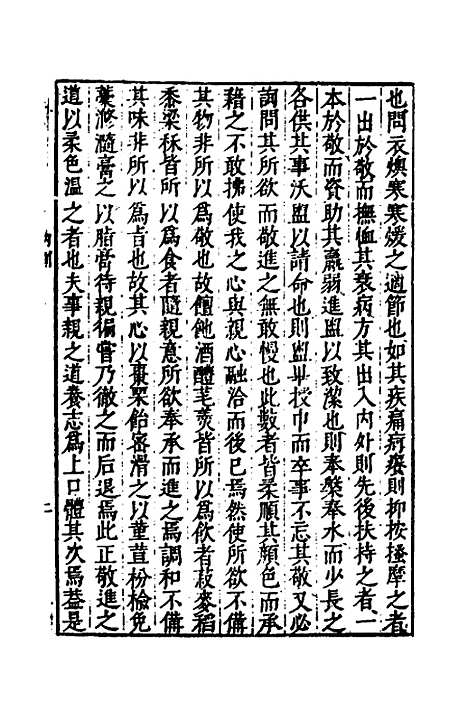 也問衣燠寒寒煖之適節也如其疾痛疴癢則抑按搔摩之者
一出於敬而撫恤其衰病方其出入內外則先後扶持之者一
本於敬而資助其羸弱進盥以致潔也則奉槃奉水而少長之
各供其事沃盥以請命也則盥畢授巾而卒事不忘其敬又必
詢問其所欲而敬進之無敢慢也此數者皆柔順其顏色而承
藉之不敢拂使我之心與親心融洽而後已焉然使所欲不備
其物非所以爲敬也故饘飽酒醴芼羹皆所以爲飲者菽麥稻
黍粱秫皆所以爲食者隨親意所欲奉承而進之焉調和不備
其味非所以爲旨也故其心以棗栗飴密滑之以菫荁枌榆免
薧滫瀡膏之以脂膏待親徧嘗乃徹之而后退焉此正敬進之
道以柔色温之者也夫事親之道養志爲上口體其次焉葢是
內則
二